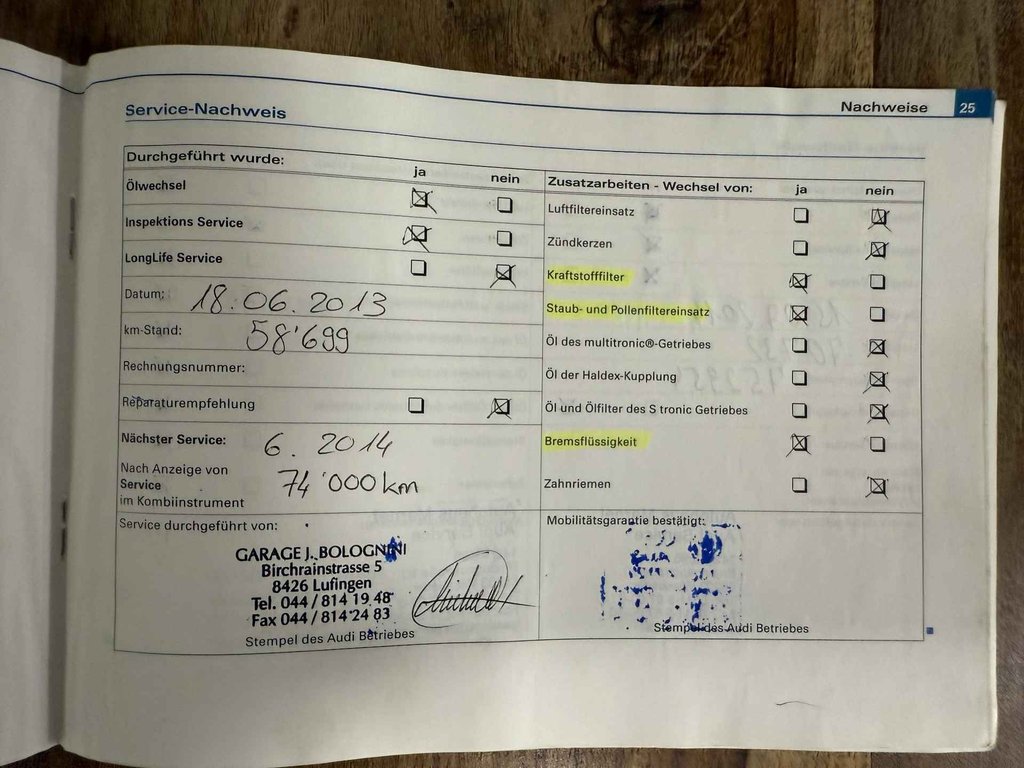 Nachweise 25
Service-Nachweis
Durchgeführt wurde: ja nein
Ölwechsel
Inspektions Service
LongLife Service
Datum: 18.06.2013
km-Stand: 58'699
Rechnungsnummer:
Reparaturempfehlung
Nächster Service: 6. 2014
Nach Anzeige von
Service 74'000 km
im Kombiinstrument
Service durchgeführt von:
GARAGE J. BOLOGNINI
Birchrainstrasse 5
8426 Lufingen
Tel. 044 / 814 19 48
Fax 044 / 814 24 83
Stempel des Audi Betriebes
Zusatzarbeiten - Wechsel von: ja nein
Luftfiltereinsatz
Zündkerzen
Kraftstofffilter
Staub- und Pollenfiltereinsatz
Öl des multitronic®-Getriebes
Öl der Haldex-Kupplung
Öl und Ölfilter des S tronic Getriebes
Bremsflüssigkeit
Zahnriemen
Mobilitätsgarantie bestätigt:
Stempel des Audi Betriebes